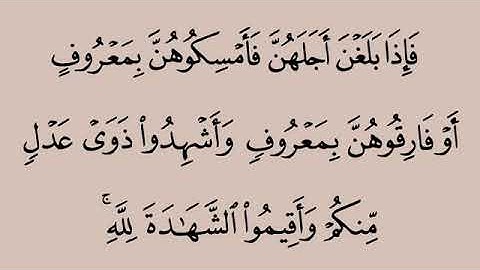 فَإِذَا بَلَغْنَ أَجَلَهُنَّ فَأَمْسِكُوهُنَّ بِمَعْرُوفٍ
أَوْ فَارِقُوهُنَّ بِمَعْرُوفٍ وَأَشْهِدُوا۟ ذَوَىْ عَدْلٍ
مِّنكُمْ وَأَقِيمُوا۟ ٱلشَّهَـٰدَةَ لِلَّهِ ۚ